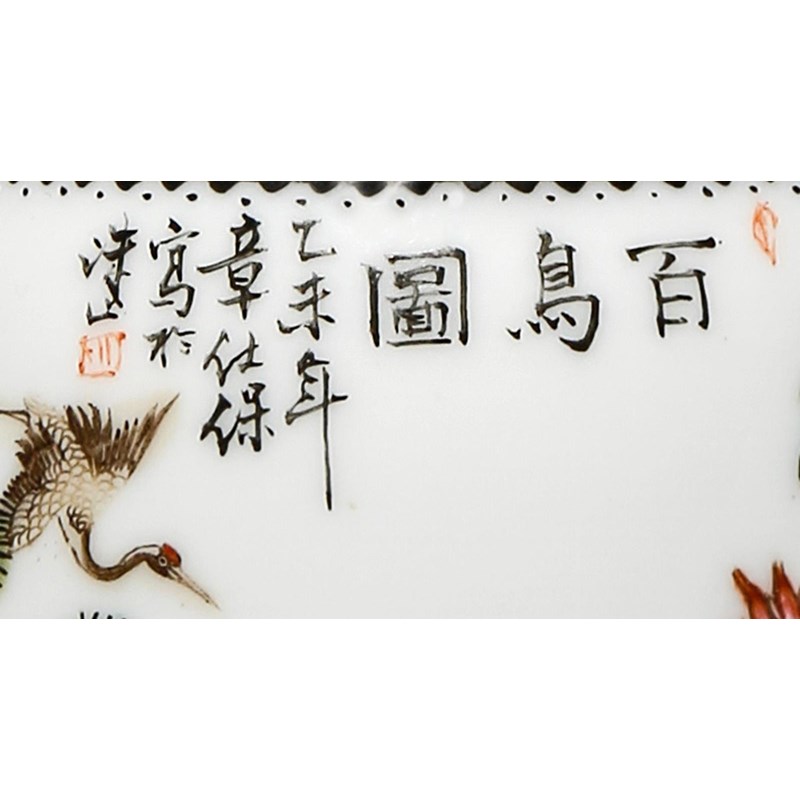 百鳥圖
乙未年
章仕保
寫於